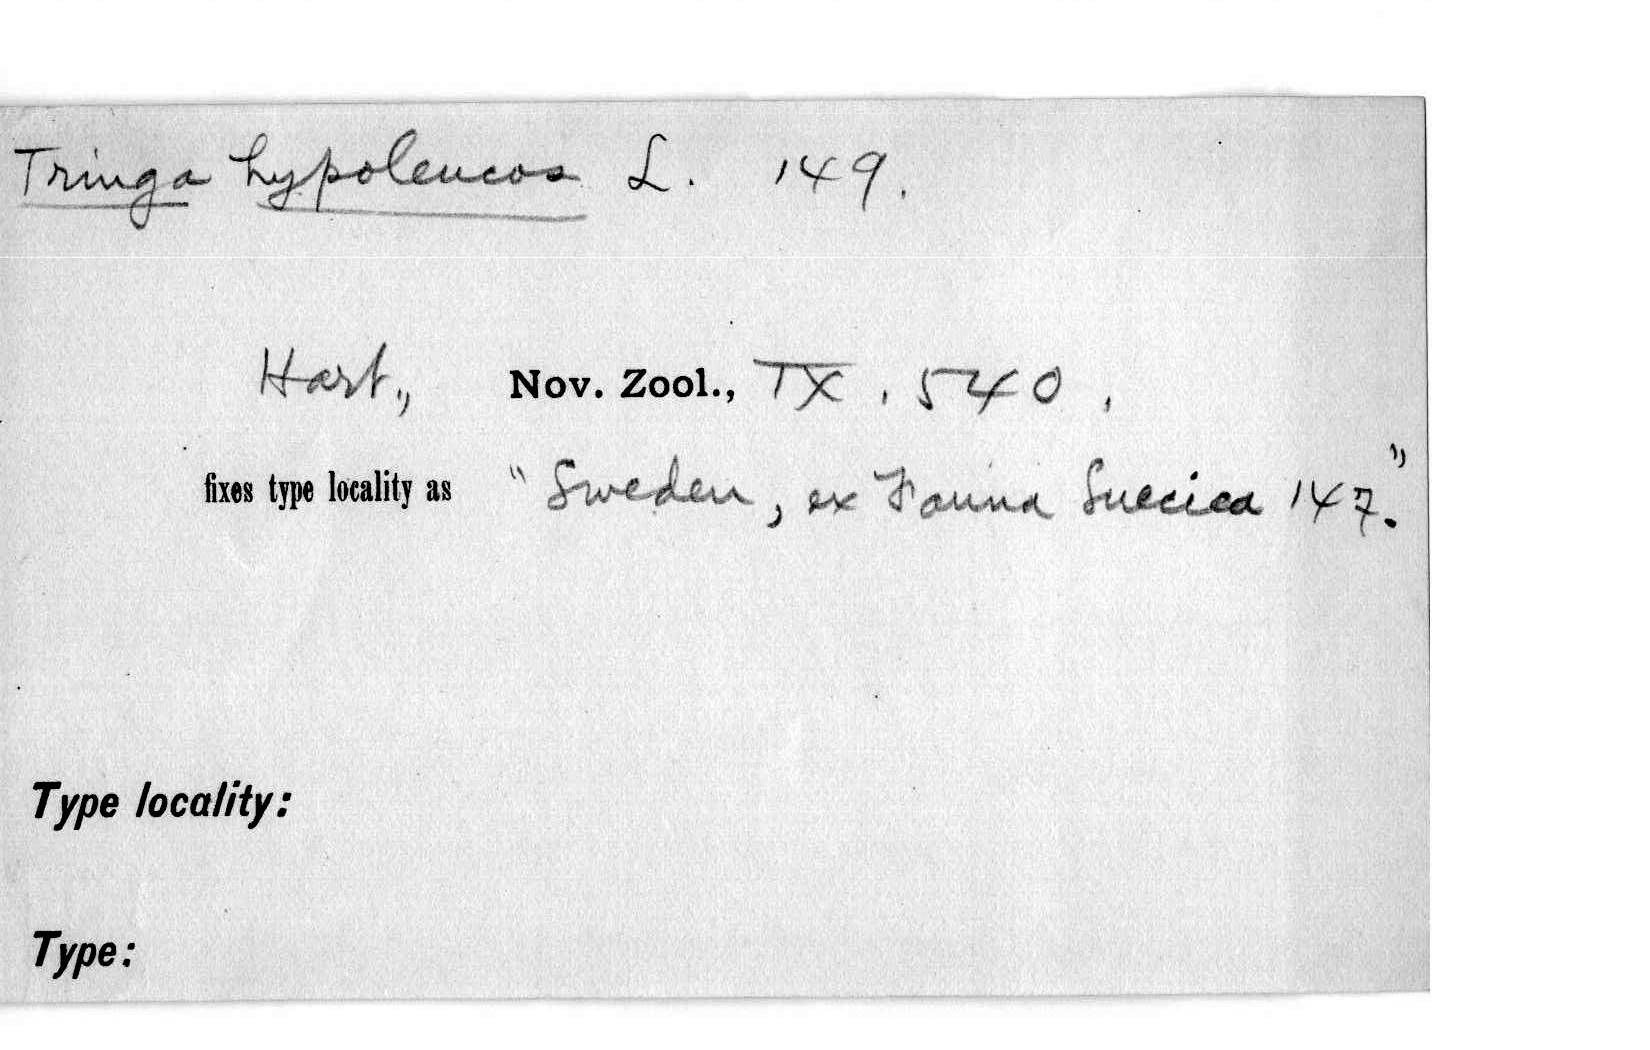 Tringa hypoleucos L. 149.
Hart., Nov. Zool., IX, 540,
fixes type locality as "Sweden, ex Fauna Suecica 147."
Type locality:
Type: